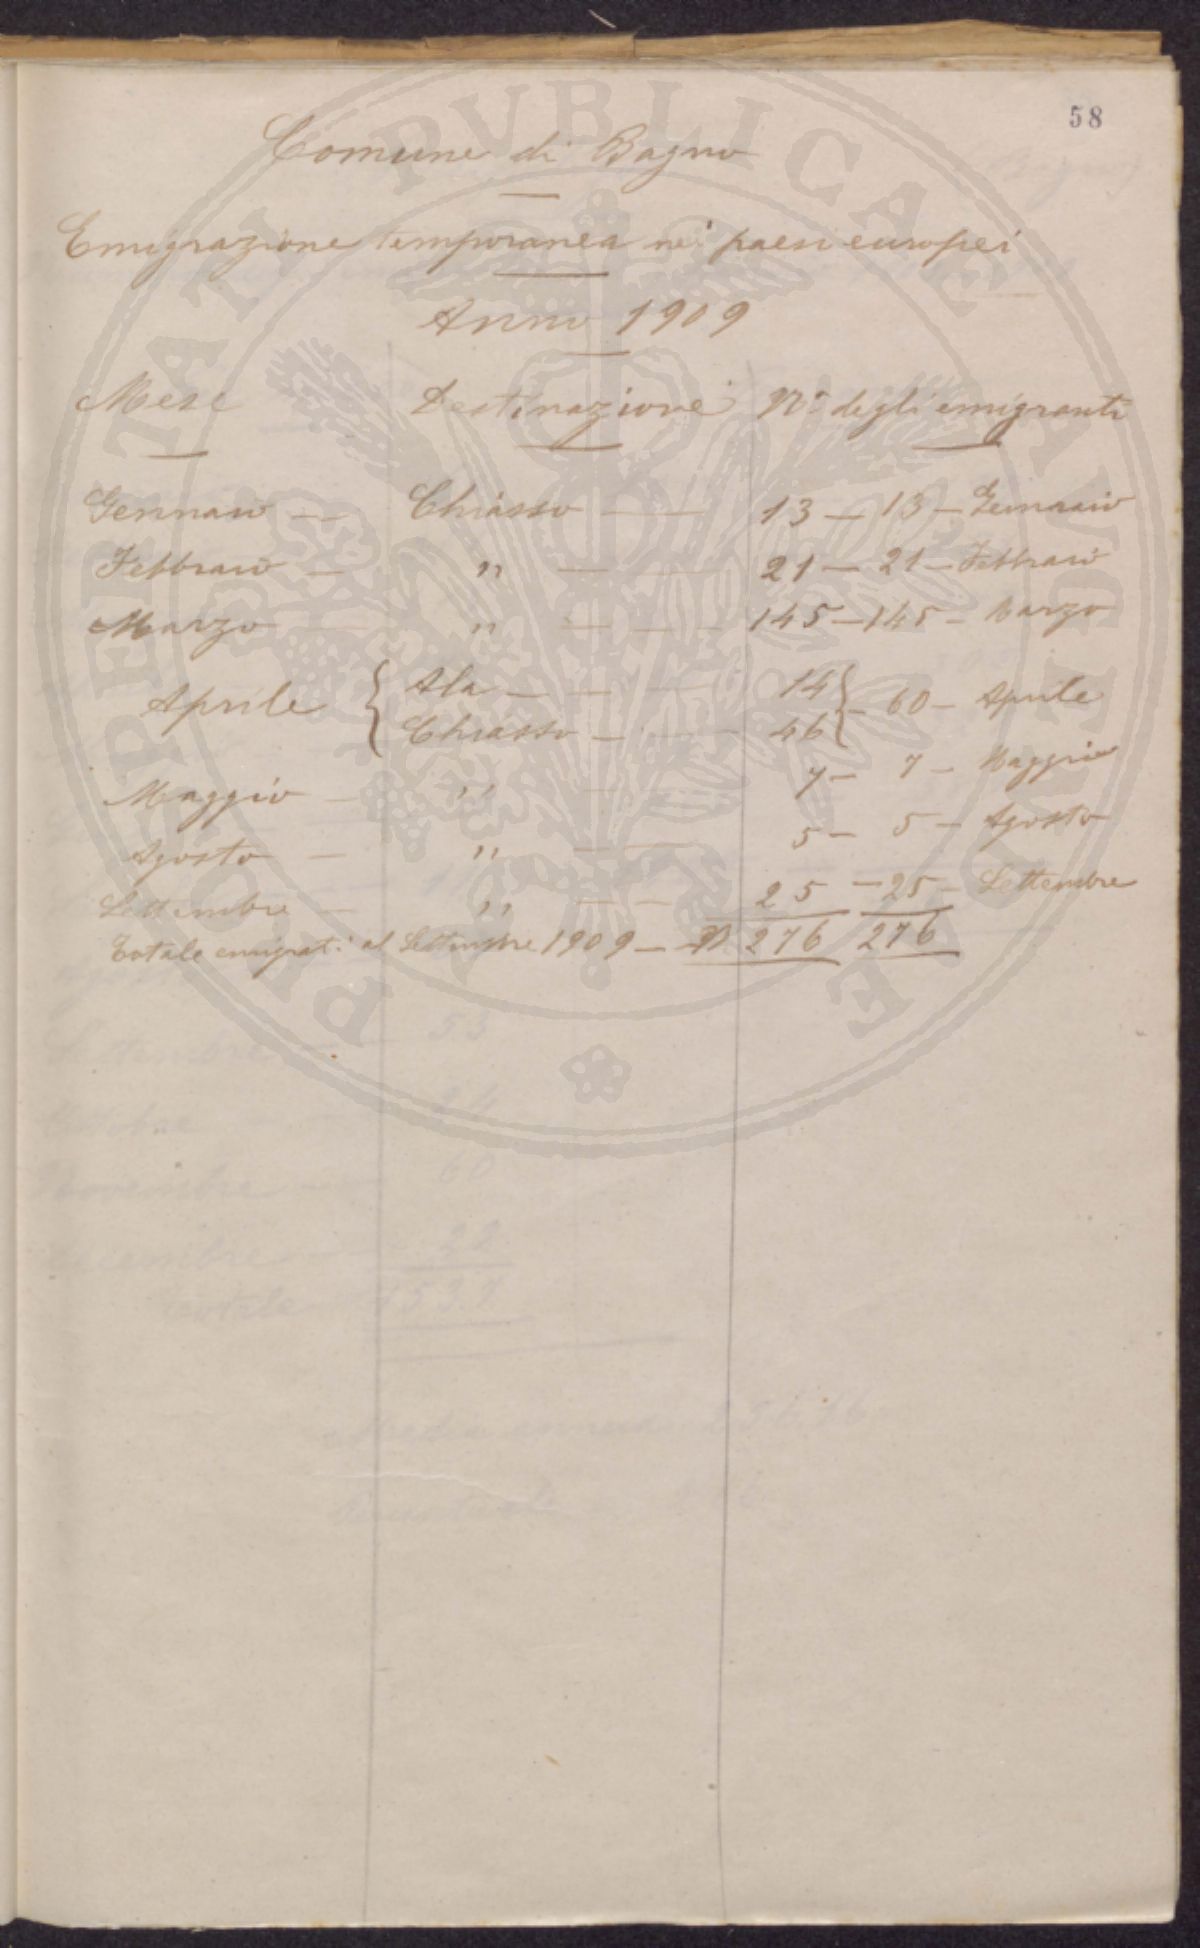 58
Comune di Bagno
Emigrazione temporanea nei paesi europei
Anno 1909
Mese Destinazione N° degli emigranti
Gennaio — Chiasso — — 13 — 13 — Gennaio
Febbraio — " — — 21 — 21 — Febbraio
Marzo — " — — 145 — 145 — Marzo
Aprile { Ala — — — 14 } — 60 — Aprile
Chiasso — — 46
Maggio — " — — 7 — 7 — Maggio
Agosto — " — — 5 — 5 — Agosto
Settembre — " — — 25 — 25 — Settembre
Totale emigrati al Settembre 1909 — N 276 276
PVBLICAE
PROPERTATI
53
Settembre
Ottobre
60
Novembre
Dicembre 22
Totale
Media annua